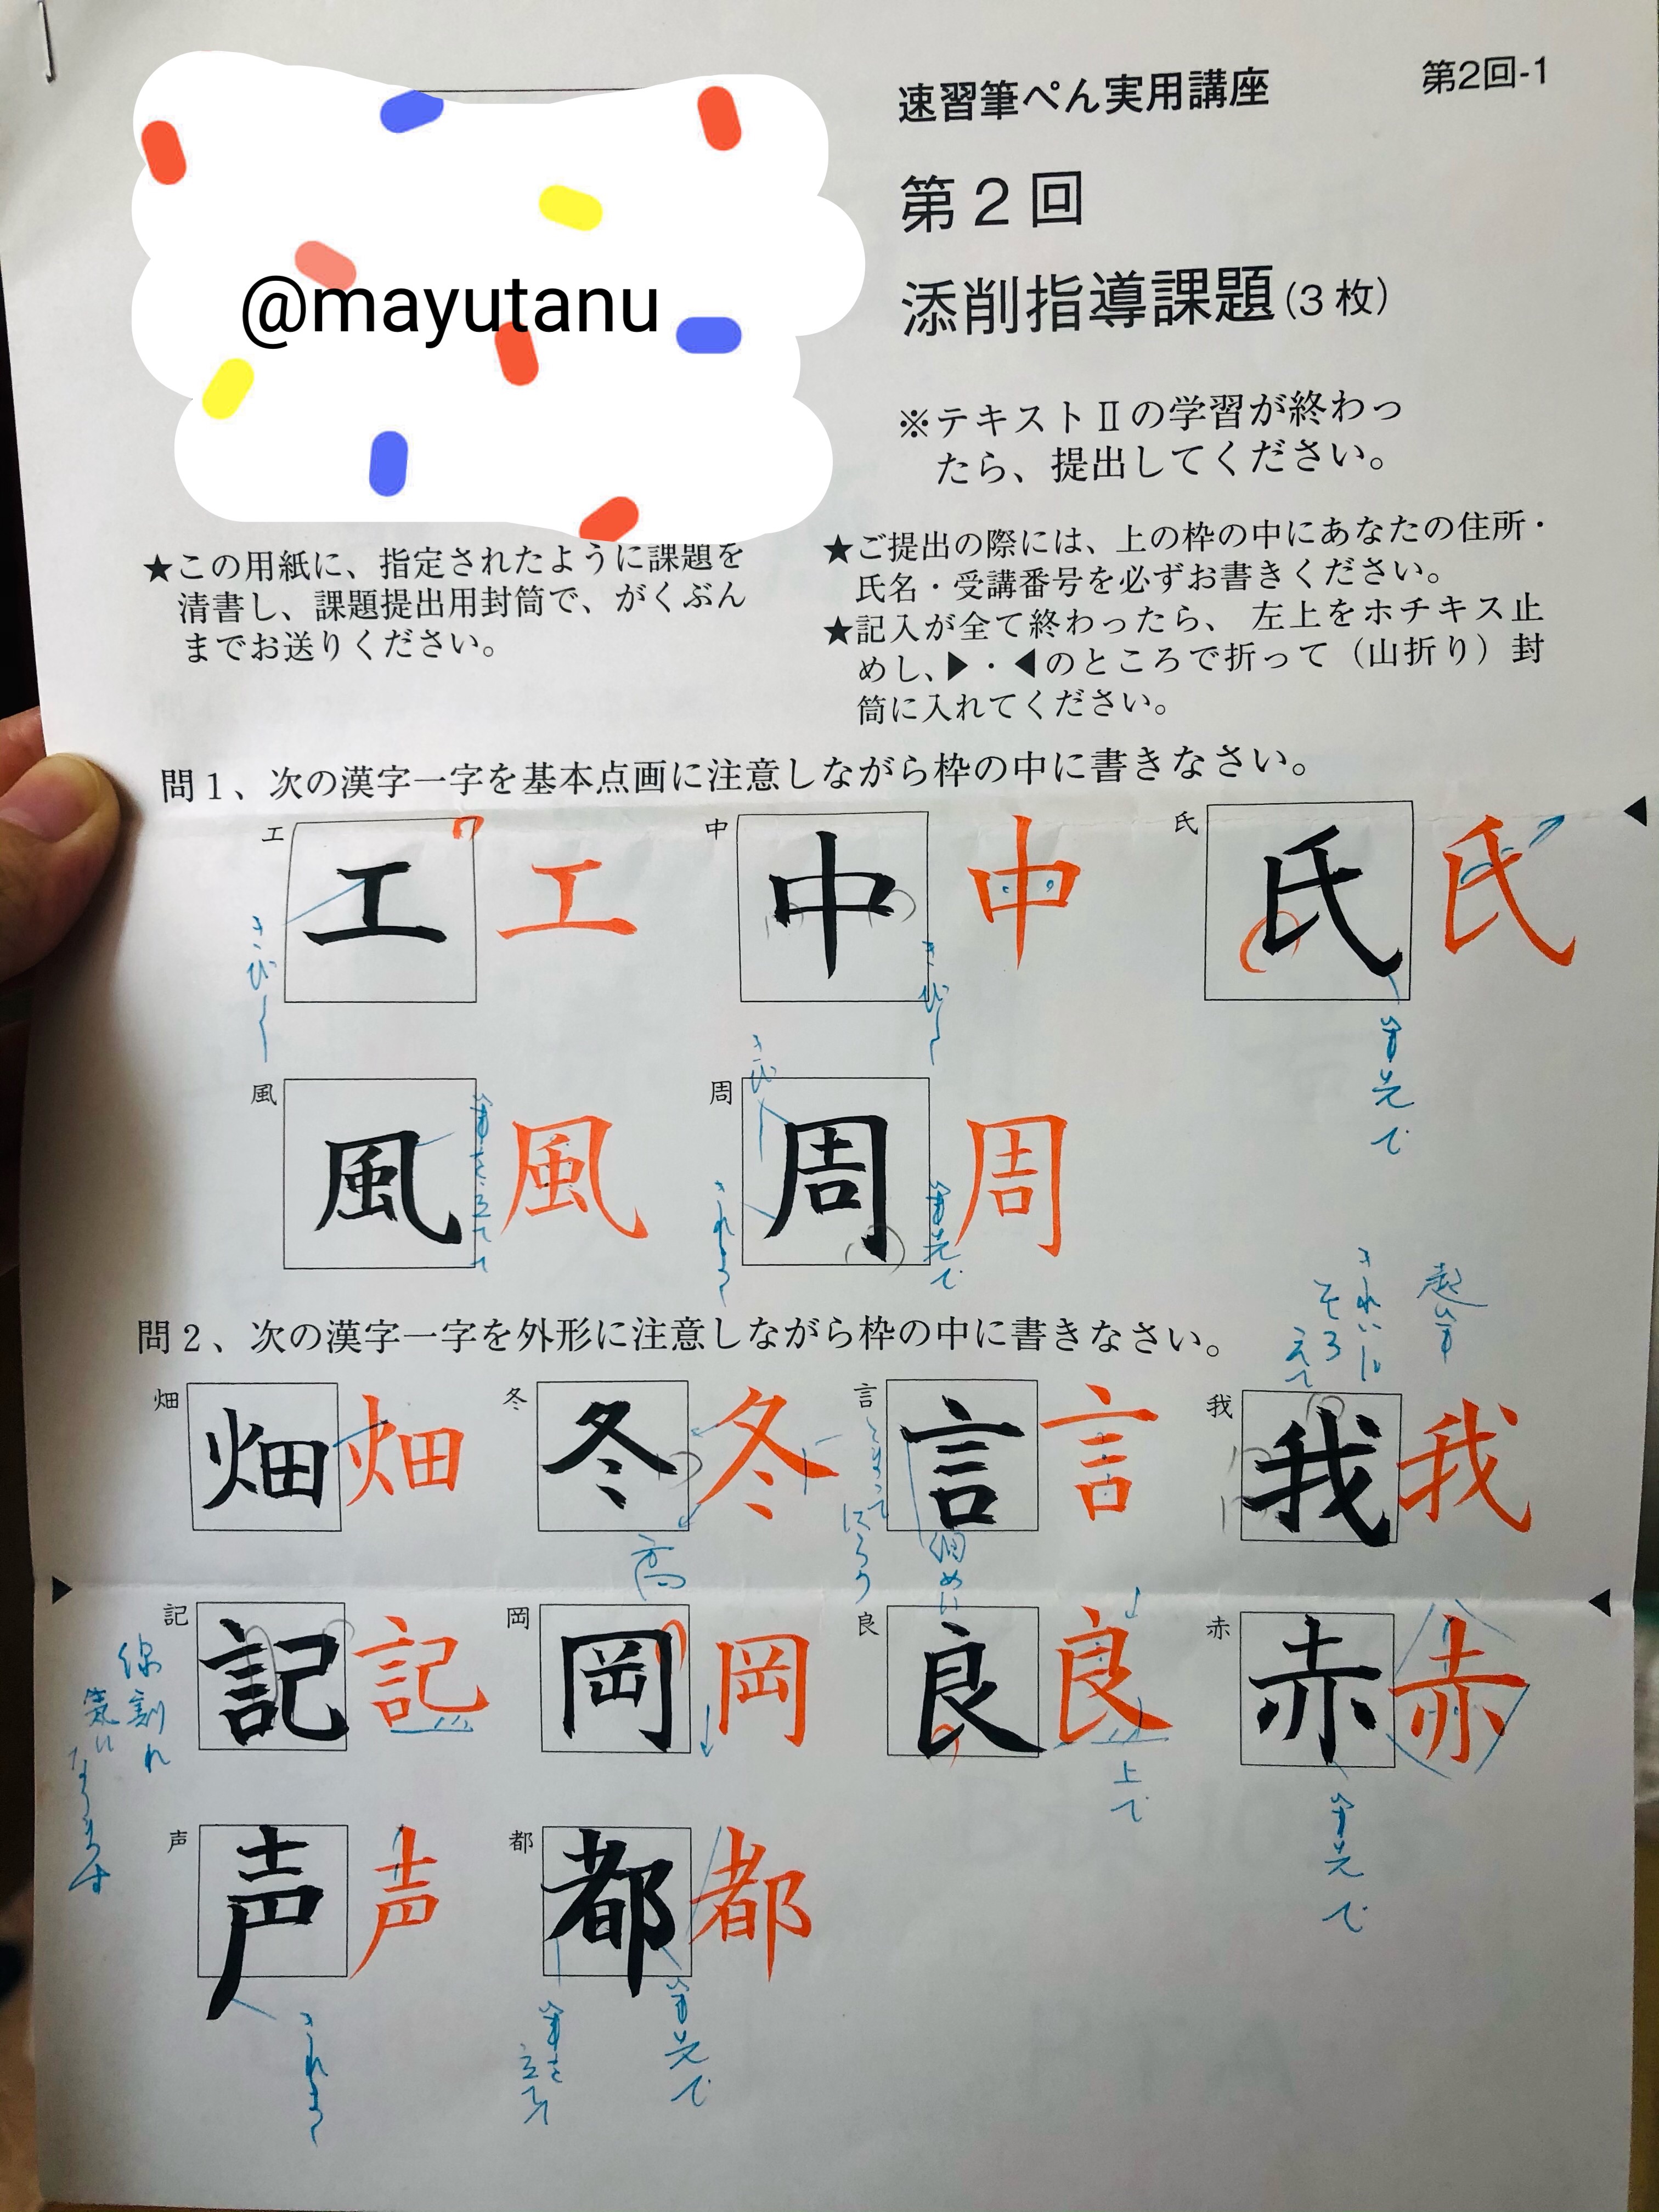 速習筆ぺん実用講座
第2回-1
第2回
添削指導課題(3枚)
@mayutanu
※テキストⅡの学習が終わっ
たら、提出してください。
★この用紙に、指定されたように課題を
清書し、課題提出用封筒で、がくぶん
までお送りください。
★ご提出の際には、上の枠の中にあなたの住所・
氏名・受講番号を必ずお書きください。
★記入が全て終わったら、左上をホチキス止
めし、▶・◀のところで折って(山折り)封
筒に入れてください。
問1、次の漢字一字を基本点画に注意しながら枠の中に書きなさい。
工 工 工 中 中 中 氏 氏 氏
きびしく
きびしく
筆先で
風 風 風 周 周 周
筆を立てて
きびしく
筆先で
問2、次の漢字一字を外形に注意しながら枠の中に書きなさい。
起筆
きれいに
そろえて
畑 畑 畑 冬 冬 冬 言 言 言 我 我 我
高
細めに
記 記 記 岡 岡 岡 良 良 良 赤 赤 赤
線割れ
気になります
上で
筆先で
声 声 声 都 都 都
筆を
立てて
筆先で